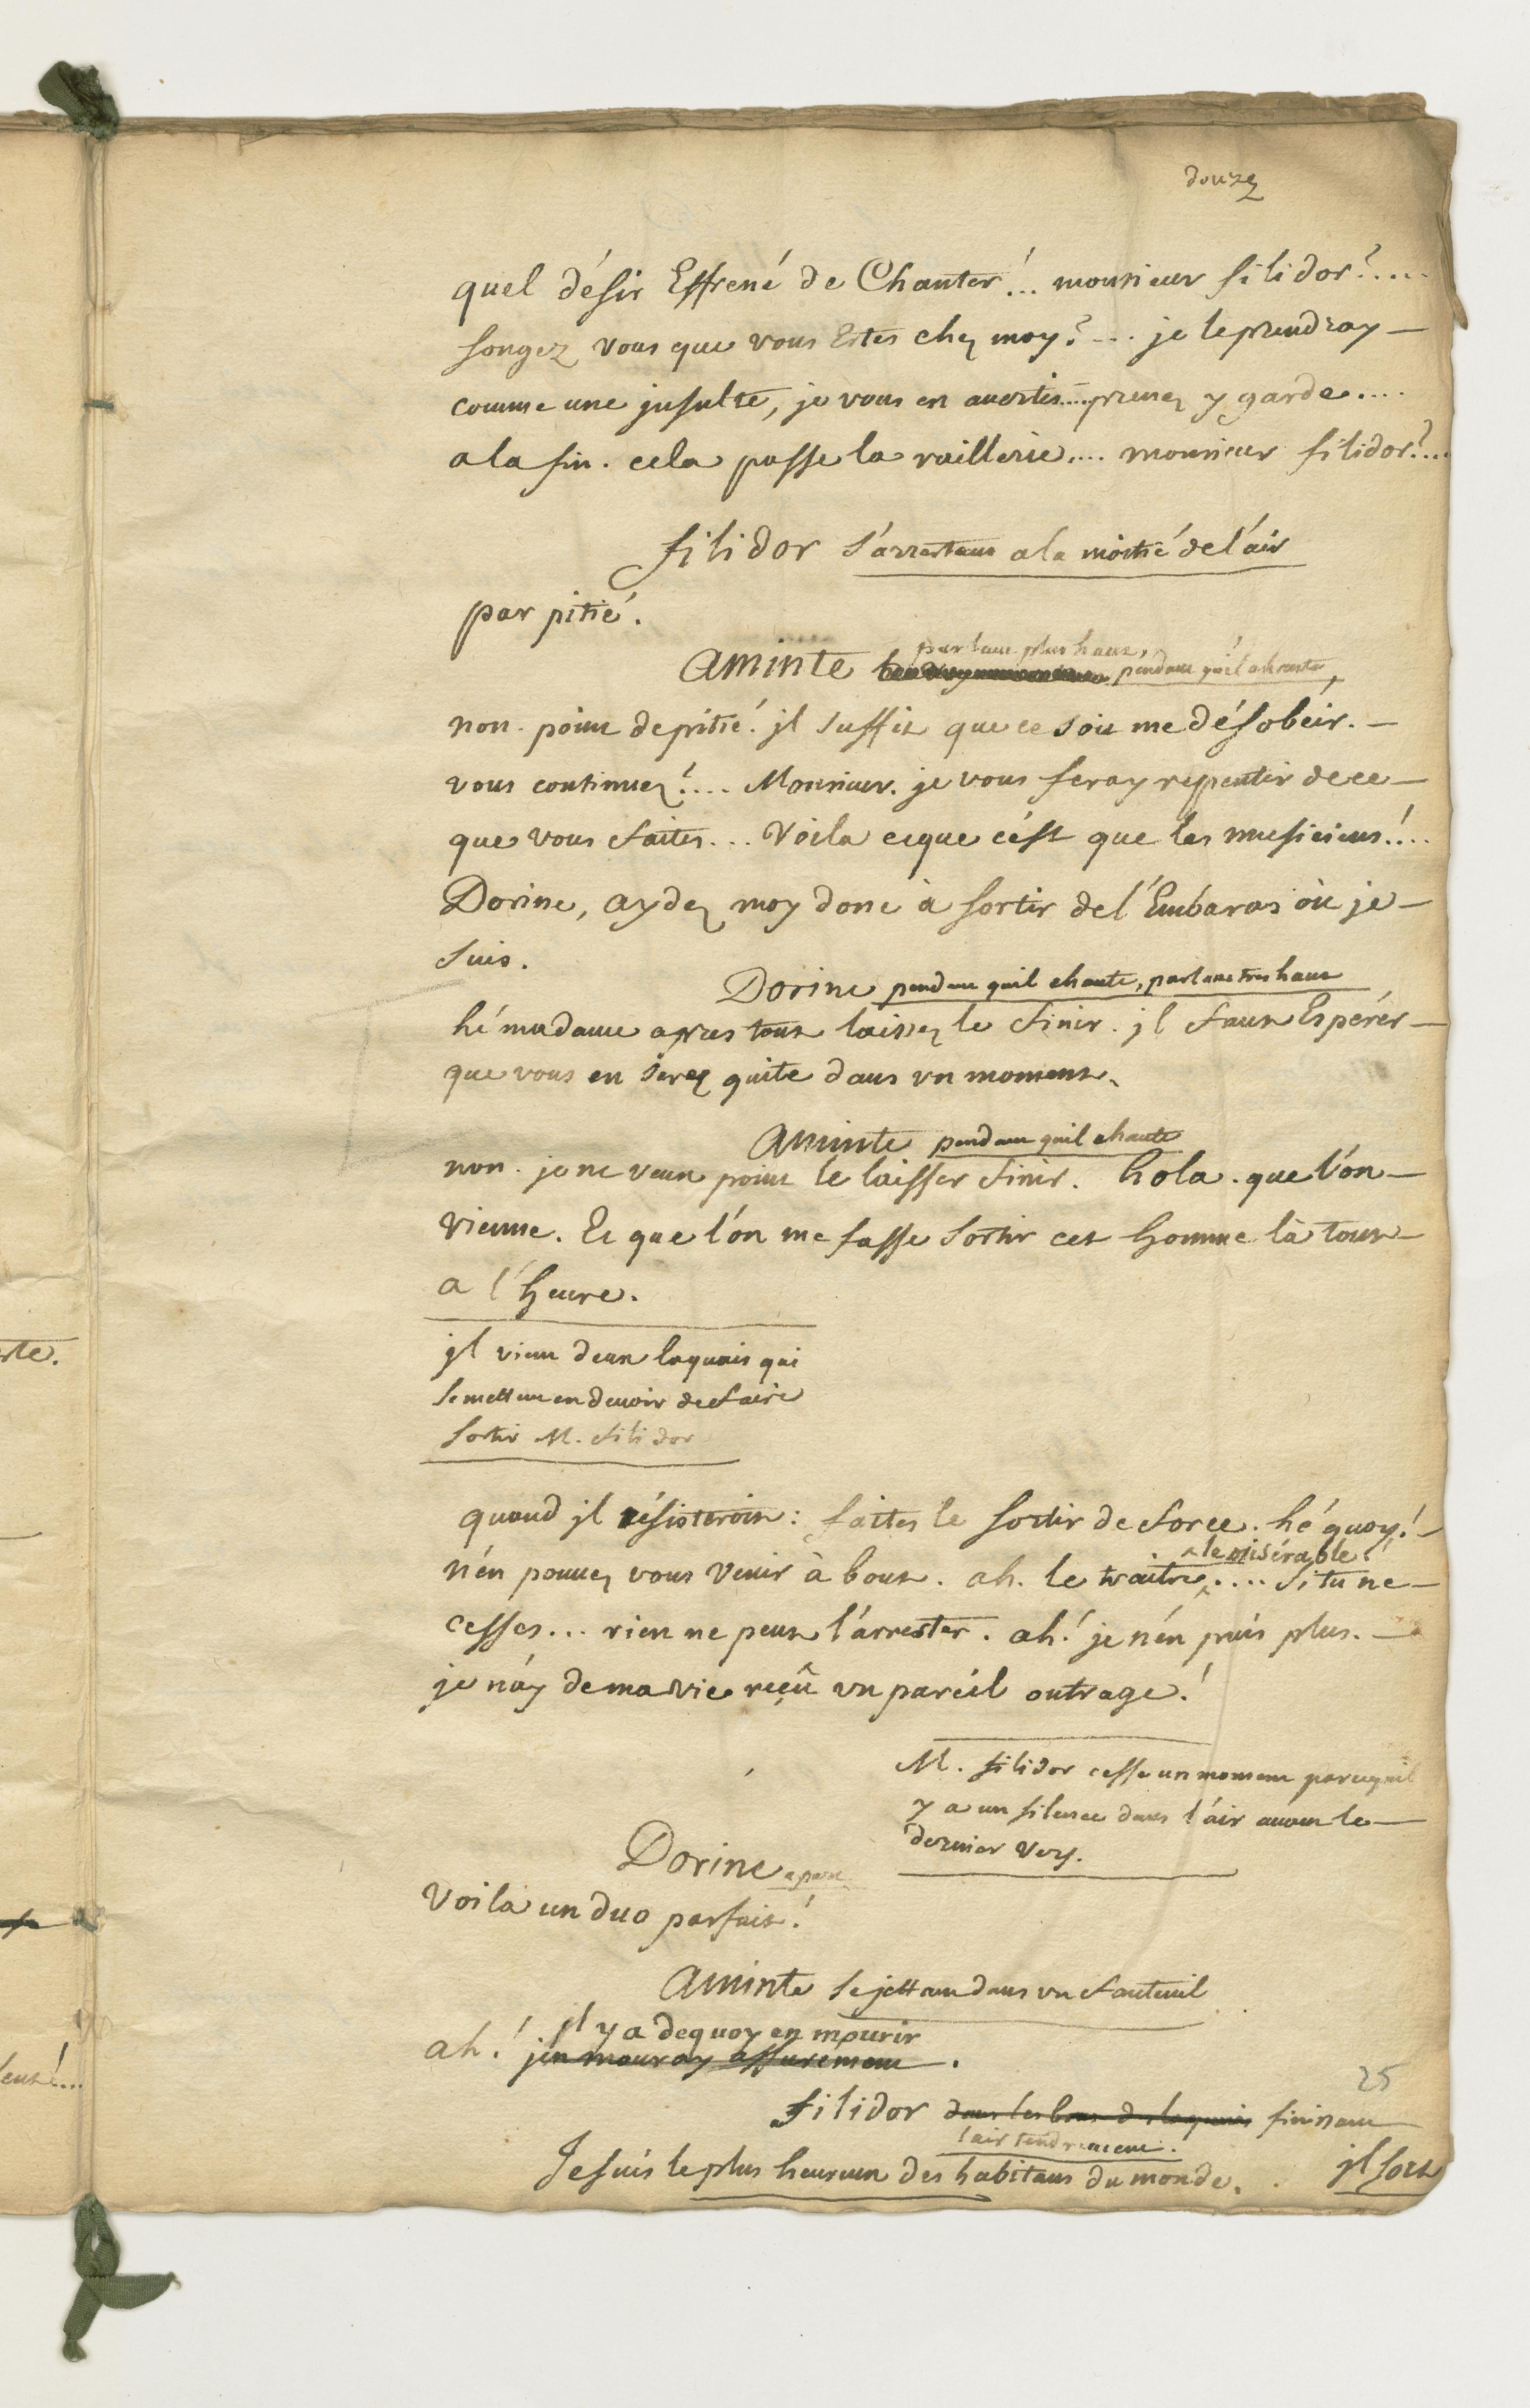 douze
quel désir Effrené de Chanter!... monsieur filidor?....
songez vous que vous Estes chez moy?.... je le prendray
comme une jnsulte, je vous en auertis.... prenez y garde....
a la fin. cela passe la raillerie.... monsieur filidor?...
filidor s'arrestant a la moitié de l'air
par pitié.
parlant plus haut,
Aminte pendant qu'il chante,
non. point de pitié. jl suffit que ce soit me désobéir.
vous continuez?.... Monsieur. je vous feray repentir de ce
que vous faites... Voila ceque c'ést que les musiciens!...
Dorine, aydez moy donc à sortir de l'Embaras où je
suis.
Dorine pendant quil chante, parlant tres haut
hé madame apres tout laissez le finir. jl faut Espérér
que vous en serez quite dans vn moment.
Aminte pendant quil chante
non. je ne veux point le laisser finir. hola. que l'on
vienne. Et que l'on me fasse sortir cet homme là tout
a l'heure.
jl vient deux laquais qui
se mettent en deuoir de faire
sortir M. filidor
quand jl résisteroit: faites le sortir de force. hé quoy!
le misérable!
n'én pouuez vous venir à bout. ah. le traitre.... si tu ne
cesses... rien ne peut l'arrester. ah! je n'én puis plus.
je n'ay de ma vie reçû vn pareil outrage!
M. filidor cesse un moment parcequil
y a un silence dans l'air auant le
dernier vers.
Dorine a part
Voila un duo parfait!
Aminte se jettant dans vn fauteuil
jl y a dequoy en mourir
ah! j'en mouray assurement.
25
filidor dans les bras des laquais finissant
l'air tendrement.
Je suis le plus heureux des habitans du monde. jl sort
rte.